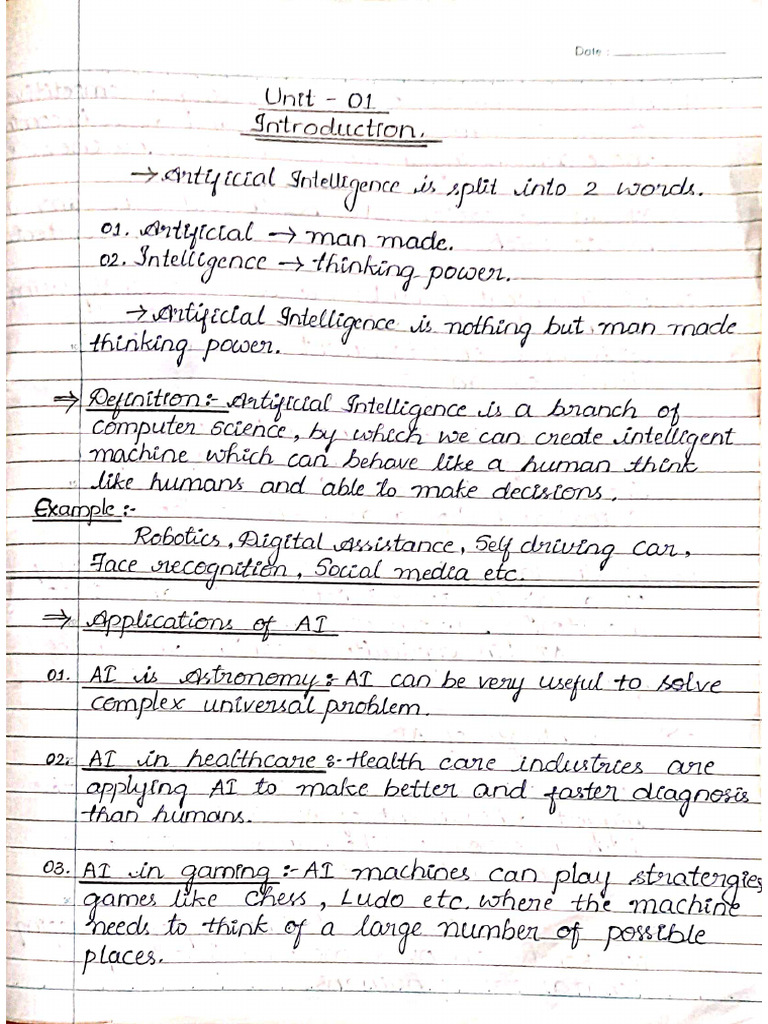 Date :
Unit - 01
Introduction.
→ Artificial Intelligence is split into 2 words.
01. Artificial → man made.
02. Intelligence → thinking power.
→ Artificial Intelligence is nothing but man made
thinking power.
⇒ Definition :- Artificial Intelligence is a branch of
computer science, by which we can create intelligent
machine which can behave like a human think
like humans and able to make decisions.
Example :-
Robotics, Digital Assistance, Self driving car,
Face recognition, Social media etc.
⇒ Applications of AI
01. AI is Astronomy :- AI can be very useful to solve
complex universal problem.
02. AI in healthcare :- Health care industries are
applying AI to make better and faster diagnosis
than humans.
03. AI in gaming :- AI machines can play stratergies
games like Chess, Ludo etc. where the machine
needs to think of a large number of possible
places.